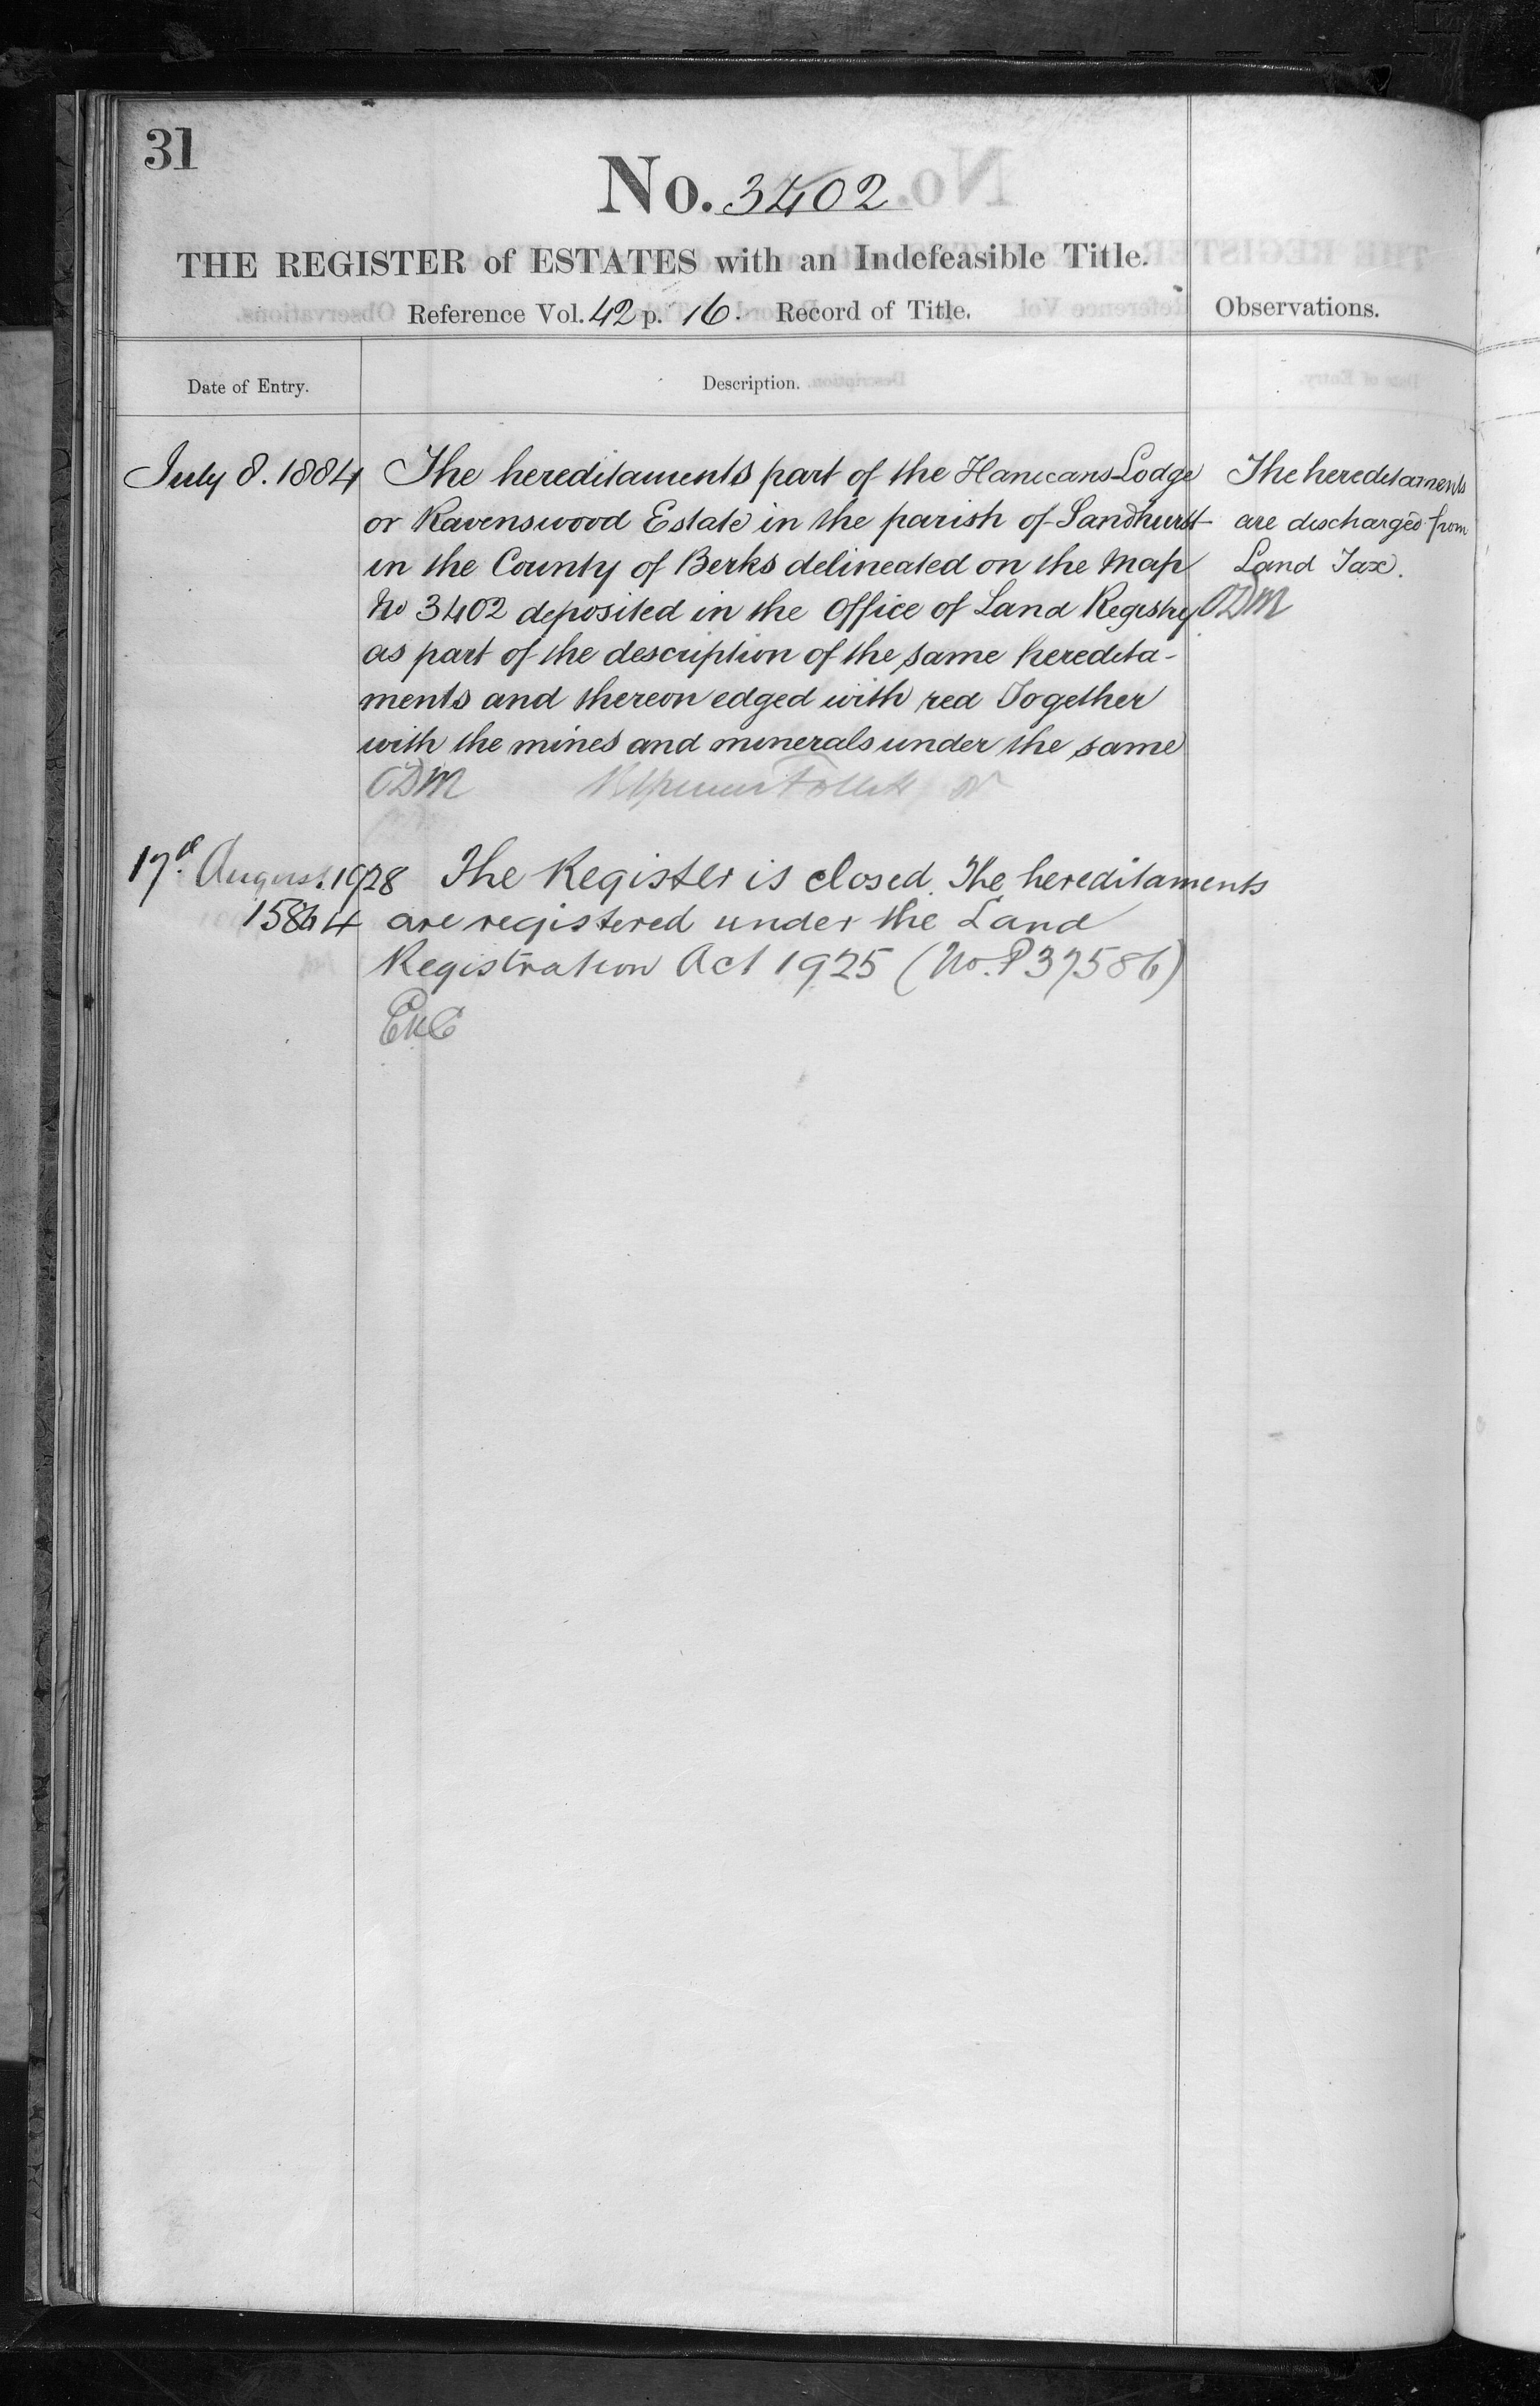 31
No. 3402
THE REGISTER of ESTATES with an Indefeasible Title.
Reference Vol. 42 p. 16. Record of Title.
Observations.
Date of Entry.
Description.
July 8. 1884
The hereditaments part of the Hanicans Lodge
or Ravenswood Estate in the parish of Sandhurst
in the County of Berks delineated on the Map
No 3402 deposited in the Office of Land Registry
as part of the description of the same heredita-
ments and thereon edged with red Together
with the mines and minerals under the same
ODM
The hereditaments
are discharged from
Land Tax.
ODM
17th August 1928
The Register is closed. The hereditaments
are registered under the Land
Registration Act 1925 (No. P37586)